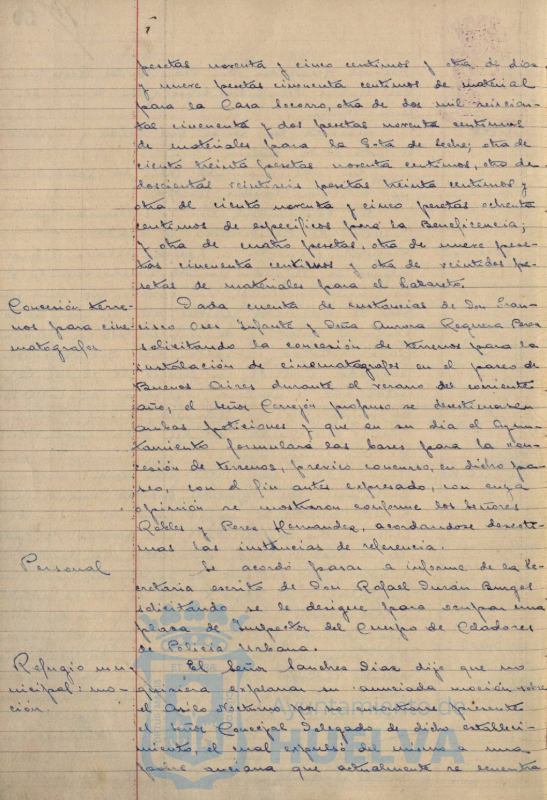 pesetas noventa y cinco centimos y otra de diez
y nueve pesetas cincuenta centimos de material
para la Casa Socorro, otra de dos mil seiscien-
tas cincuenta y dos pesetas noventa centimos
de materiales para la Gota de Leche; otra de
ciento treinta pesetas noventa centimos, otra de
doscientas veintiseis pesetas treinta centimos y
otra de ciento noventa y cinco pesetas ochenta
centimos de especificos para la Beneficencia;
y otra de cuatro pesetas, otra de nueve pese-
tas cincuenta centimos y otra de veintidos pe-
setas de materiales para el Lazareto.
Concesión terre-
nos para cine-
matografos
Dada cuenta de instancias de Don Fran-
cisco Oses Infante y Doña Aurora Reguera
solicitando la concesión de terrenos para la
instalación de cinematografos en el paseo de
Buenos Aires durante el verano del corriente
año, el señor Cerrejón propuso se desestimaran
ambas peticiones y que en su dia el Ayun-
tamiento formulara las bases para la con-
cesión de terrenos, previo concurso, en dicho pa-
seo, con el fin antes expresado, con cuya
opinión se mostraron conforme los señores
Robles y Perez Hernandez, acordandose desesti-
mar las instancias de referencia.
Personal
Se acordó pasar a informe de la Se-
cretaria escrito de Don Rafael Durán Burgos
solicitando se le designe para ocupar una
plaza de Inspector del Cuerpo de Celadores
de Policia Urbana.
Refugio mu-
nicipal: mo-
ción.
El señor Sanchez Diaz dijo que no
quisiera explanar su anunciada moción sobre
el Asilo Nocturno por no encontrarse presente
el señor Concejal Delegado de dicho estableci-
miento, el cual expulsó del mismo a una
pobre anciana que actualmente se encuentra
Ayuntamiento de
HUELVA